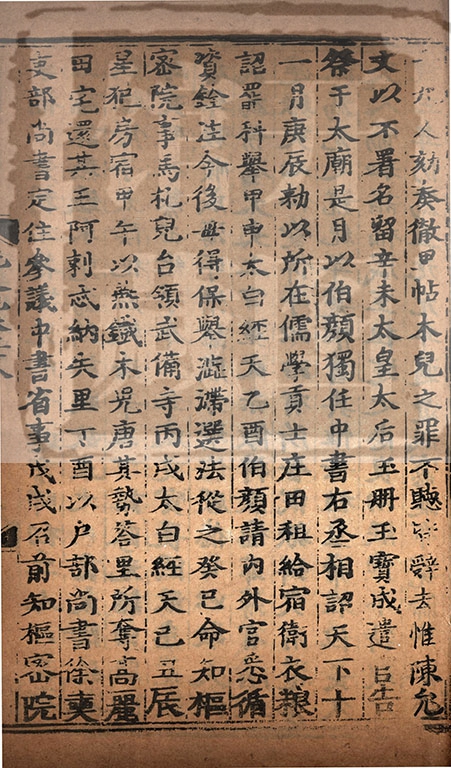 大夫人劾奏徹里帖木兒之罪不聽皆辭去惟陳允
文以不署名留辛未太皇太后玉冊玉寶成遣官告
祭于太廟是月以伯顏獨任中書右丞相詔天下十
一月庚辰勑以所在儒學貢士庄田租給宿衛衣粮
詔罷科舉甲申太白經天乙酉伯顏請內外官悉循
資銓注今後毋得保舉澁滯選法從之癸巳命知樞
密院事馬札兒台領武備寺丙戌太白經天己丑辰
星犯房宿甲午以燕鐵木兒唐其勢荅里所奪高麗
田宅還其王阿剌忒納失里丁酉以户部尚書徐奭
吏部尚書定住參議中書省事戊戌召前知樞密院